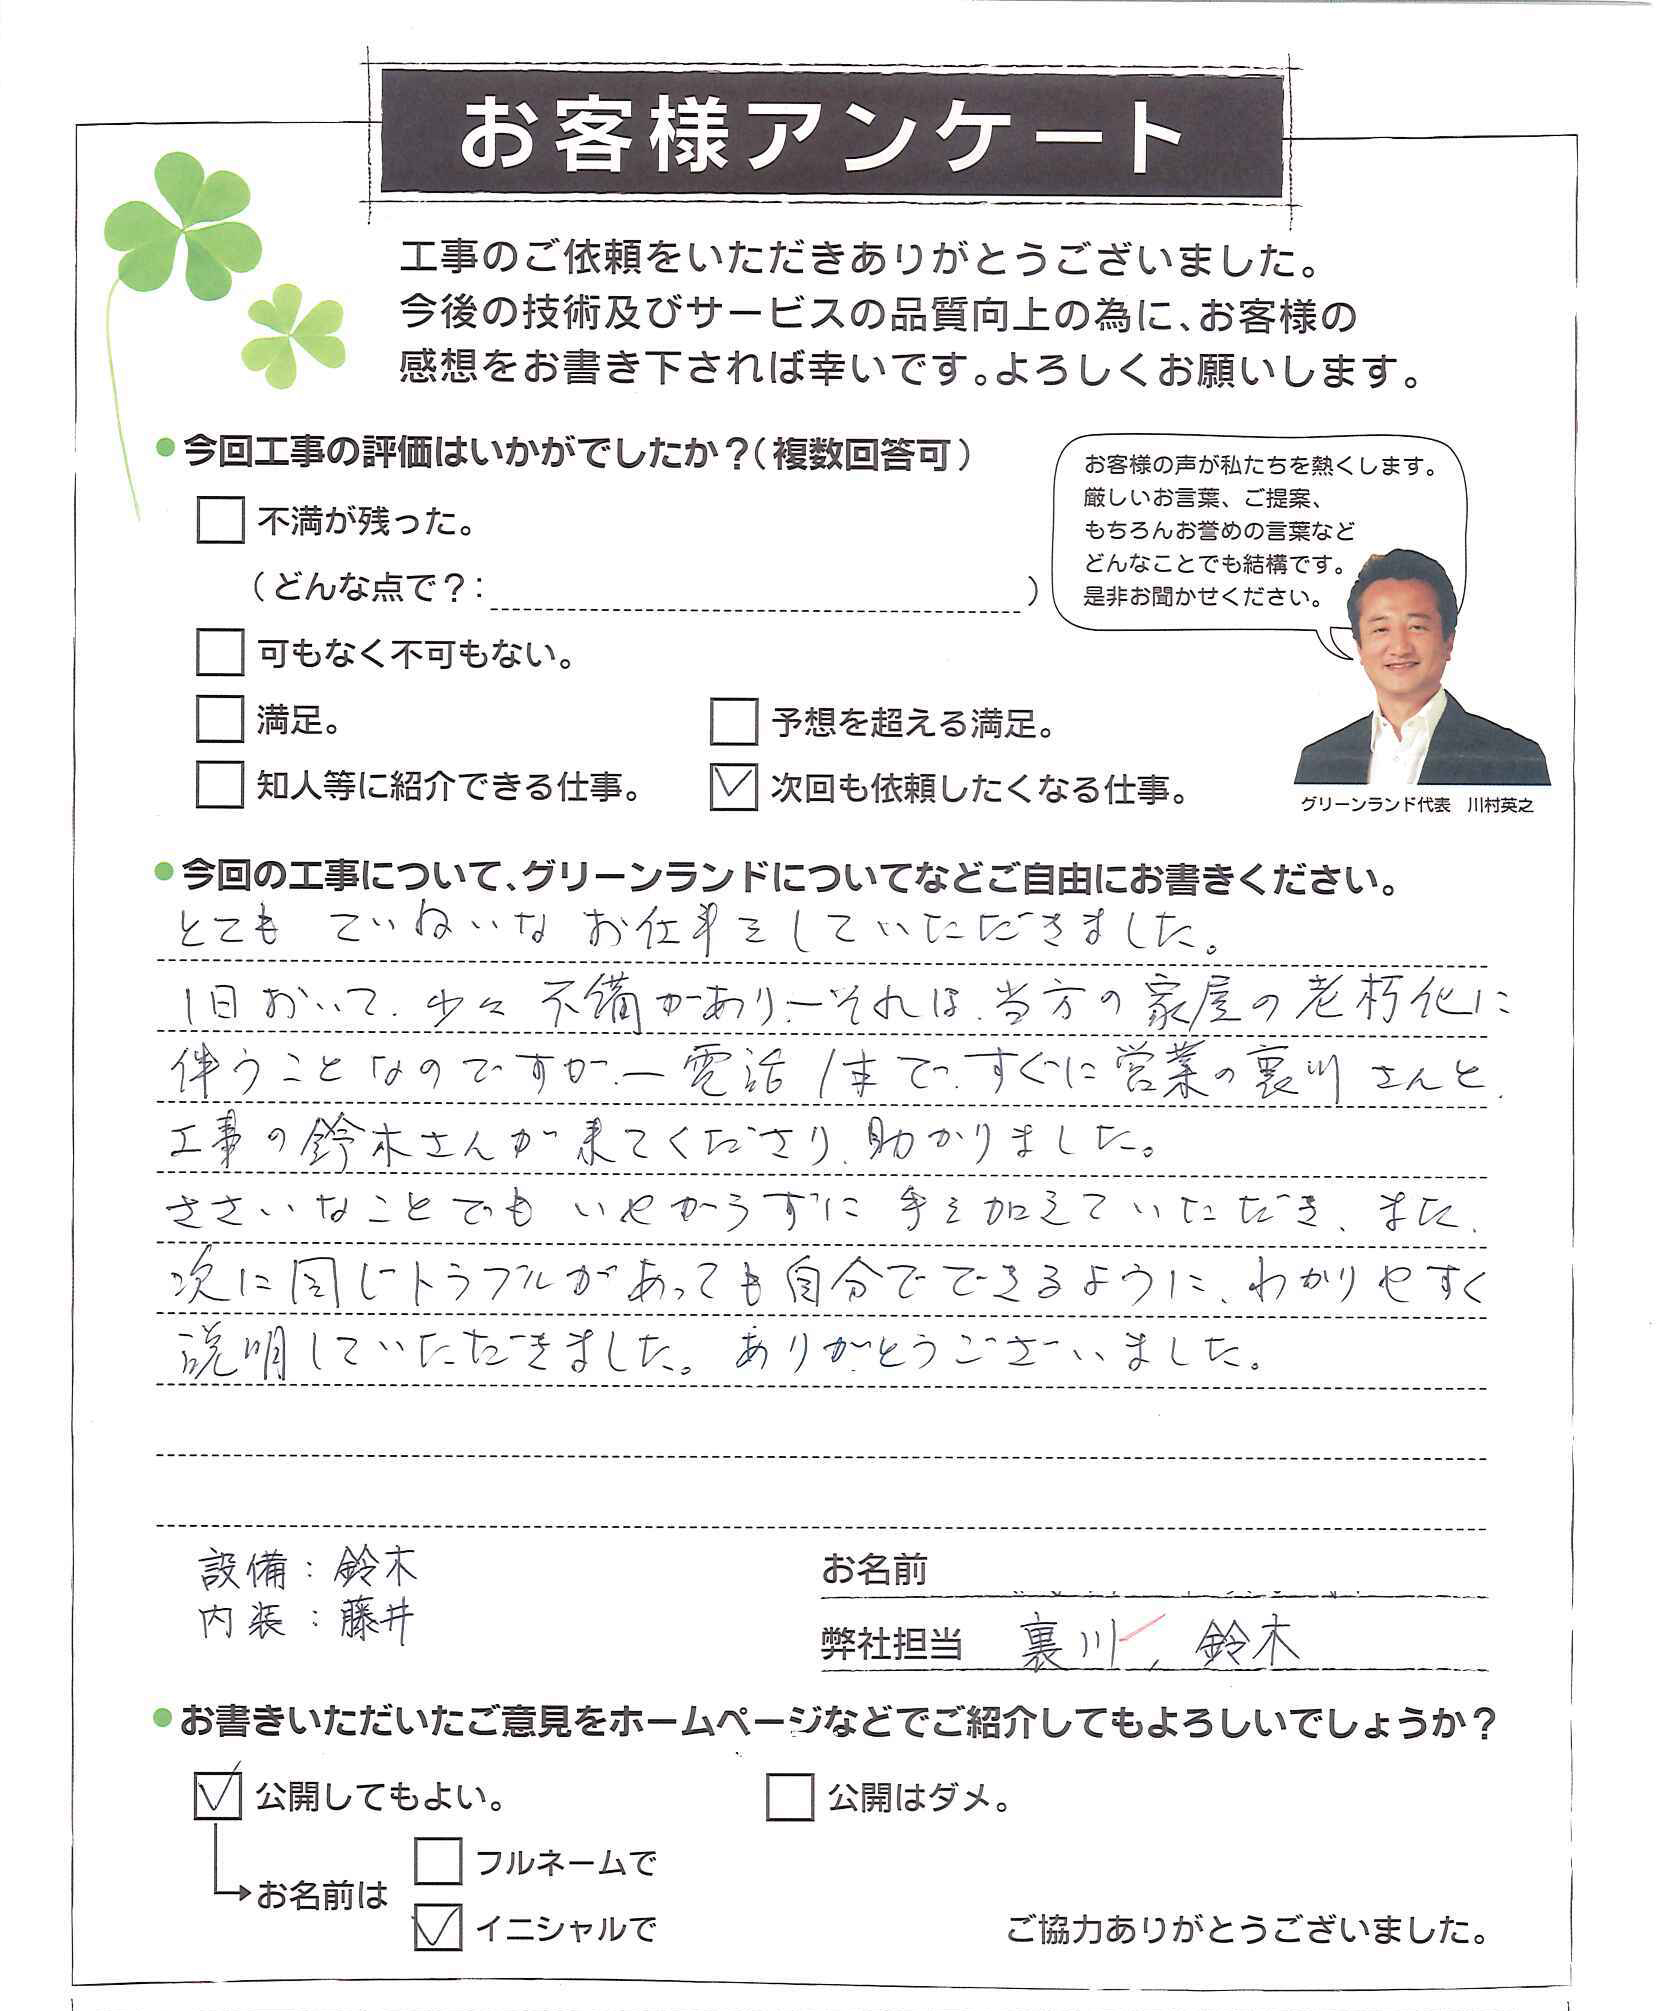 お客様アンケート
工事のご依頼をいただきありがとうございました。
今後の技術及びサービスの品質向上の為に、お客様の
感想をお書き下されば幸いです。よろしくお願いします。
●今回工事の評価はいかがでしたか？（複数回答可）
不満が残った。
（どんな点で？： ）
可もなく不可もない。
満足。
予想を超える満足。
知人等に紹介できる仕事。
次回も依頼したくなる仕事。
お客様の声が私たちを熱くします。
厳しいお言葉、ご提案、
もちろんお誉めの言葉など
どんなことでも結構です。
是非お聞かせください。
グリーンランド代表 川村英之
●今回の工事について、グリーンランドについてなどご自由にお書きください。
とても ていねいな お仕事をしていただきました。
1日おいて、少々不備があり、―それは、当方の家屋の老朽化に
伴うことなのですが、― 電話1本で、すぐに営業の裏川さんと、
工事の鈴木さんが来てくださり、助かりました。
ささいなことでも いやがらずに 手を加えていただき、また、
次に同じトラブルがあっても自分でできるように、わかりやすく
説明していただきました。ありがとうございました。
設備：鈴木
内装：藤井
お名前
弊社担当 裏川、鈴木
●お書きいただいたご意見をホームページなどでご紹介してもよろしいでしょうか？
公開してもよい。
公開はダメ。
お名前は
フルネームで
イニシャルで
ご協力ありがとうございました。